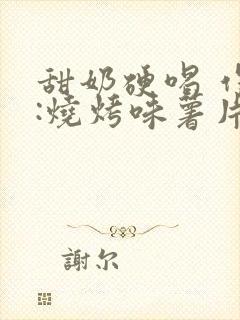 甜奶硬唱
:燒烤味薯片
謝尔